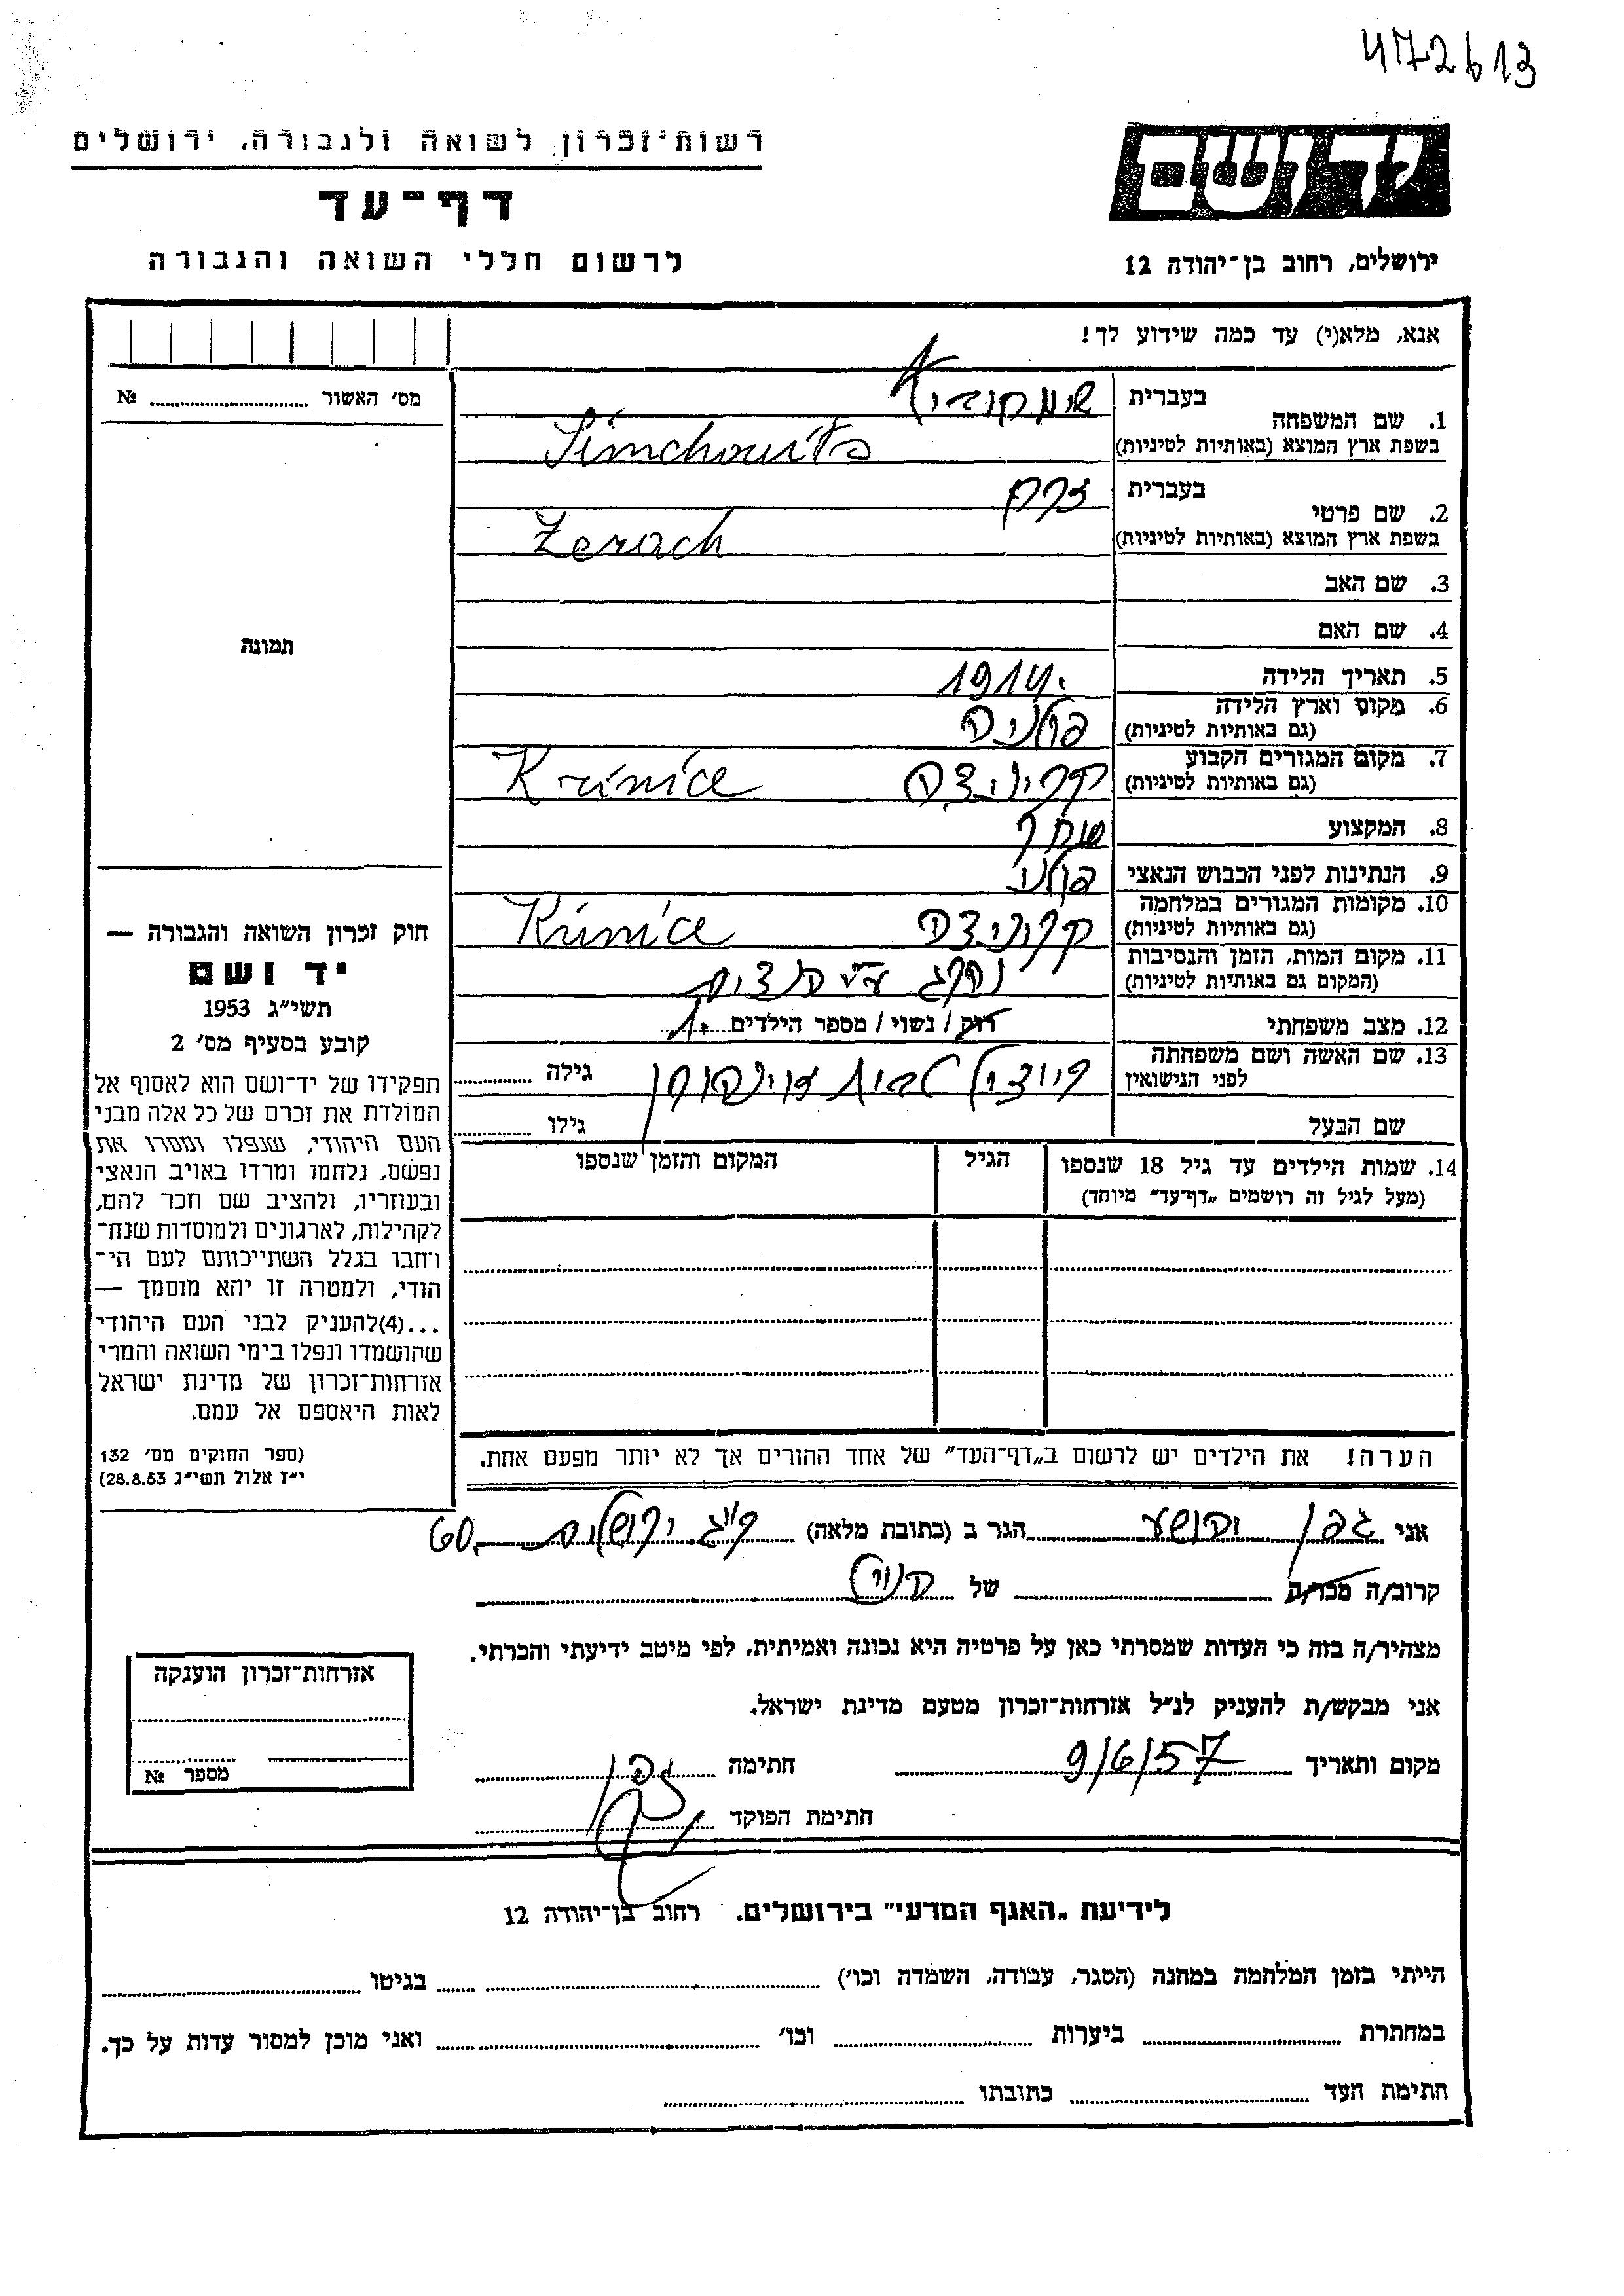 4172613
רשות־זכרון לשואה ולגבורה, ירושלים
יד ושם
דף־עד
לרשום חללי השואה והגבורה
ירושלים, רחוב בן־יהודה 12
אנא, מלא(י) עד כמה שידוע לך!
מס׳ האשור № ........
תמונה
חוק זכרון השואה והגבורה —
יד ושם
תשי״ג 1953
קובע בסעיף מס׳ 2
תפקידו של יד־ושם הוא לאסוף אל
המולדת את זכרם של כל אלה מבני
העם היהודי, שנפלו ומסרו את
נפשם, נלחמו ומרדו באויב הנאצי
ובעוזריו, ולהציב שם וזכר להם,
לקהילות, לארגונים ולמוסדות שנח־
רבו בגלל השתייכותם לעם הי־
הודי, ולמטרה זו יהא מוסמך —
...(4)להעניק לבני העם היהודי
שהושמדו ונפלו בימי השואה והמרי
אזרחות־זכרון של מדינת ישראל
לאות היאספם אל עמם.
(ספר החוקים מס׳ 132
י״ז אלול תשי״ג 28.8.53)
1. שם המשפחה בעברית שימחוביץ
בשפת ארץ המוצא (באותיות לטיניות) Simchowits
2. שם פרטי בעברית זרח
בשפת ארץ המוצא (באותיות לטיניות) Zerach
3. שם האב
4. שם האם
5. תאריך הלידה 1914
6. מקום וארץ הלידה פולניה
(גם באותיות לטיניות)
7. מקום המגורים הקבוע קריניצה Krinice
(גם באותיות לטיניות)
8. המקצוע סוחר
9. הנתינות לפני הכבוש הנאצי פולני
10. מקומות המגורים במלחמה קריניצה Krinice
(גם באותיות לטיניות)
11. מקום המות, הזמן והנסיבות נהרג ע״י הנצים
(המקום גם באותיות לטיניות)
12. מצב משפחתי רוק / נשוי / מספר הילדים 1
13. שם האשה ושם משפחתה לבית גילה ........
לפני הנישואין
שם הבעל גילו ........
14. שמות הילדים עד גיל 18 שנספו הגיל המקום והזמן שנספו
(מעל לגיל זה רושמים „דף־עד״ מיוחד)
הערה! את הילדים יש לרשום ב„דף־העד״ של אחד ההורים אך לא יותר מפעם אחת.
אני גפן יהושע הגר ב (כתובת מלאה) ירושלים 60
קרוב/ה מכר/ה ........ של הנ״ל
מצהיר/ה בזה כי העדות שמסרתי כאן על פרטיה היא נכונה ואמיתית, לפי מיטב ידיעתי והכרתי.
אני מבקש/ת להעניק לנ״ל אזרחות־זכרון מטעם מדינת ישראל.
מקום ותאריך 9/6/57 חתימה גפן
חתימת הפוקד ........
אזרחות־זכרון הוענקה
מספר №
לידיעת „האגף המדעי״ בירושלים. רחוב בן־יהודה 12
הייתי בזמן המלחמה במחנה (הסגר, עבודה, השמדה וכו׳) ........ בגיטו ........
במחתרת ........ ביערות ........ וכו׳ ........ ואני מוכן למסור עדות על כך.
חתימת העד ........ כתובתו ........